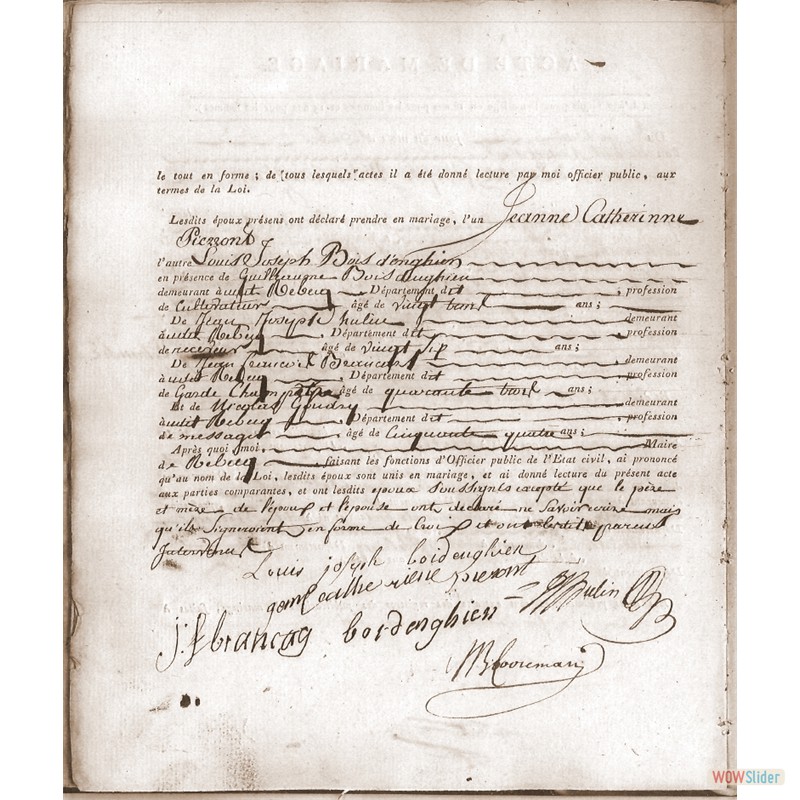 ACTE DE MARIAGE.
le tout en forme ; de tous lesquels actes il a été donné lecture par moi officier public, aux
termes de la Loi.
Lesdits époux présens ont déclaré prendre en mariage, l'un Jeanne Catherinne
Piezzont
l'autre Louis Joseph Bois d'enghien
en présence de Guillaugne Bois denghien
demeurant audit Rebecq Département dit , profession
de Cultivateur âgé de vingt ans ;
De Jean Joseph hulin demeurant
audit Rebecq , Département dit profession
de receveur âgé de vingt sep ans ;
De Jean francois Brancart demeurant
audit Rebecq , Département dit profession
de Garde Champêtre âgé de quarante ans ;
Et de Nicolas Goudry demeurant
audit Rebecq , Département dit profession
de messager âgé de Cinquante quatre ans ;
Après quoi moi, Maire
de Rebecq faisant les fonctions d'Officier public de l'Etat civil, ai prononcé
qu'au nom de la Loi, lesdits époux sont unis en mariage, et ai donné lecture du présent acte
aux parties comparantes, et ont lesdits époux soussignés excepté que le père
et mère de l'époux et l'épouse ont déclaré ne savoir écrire mais
qu'ils signeroient en forme de Croix et ont lesdits
Louis joseph bordenghien
catherine piezont
j f brancag bordenghien hulin
WOWSlider